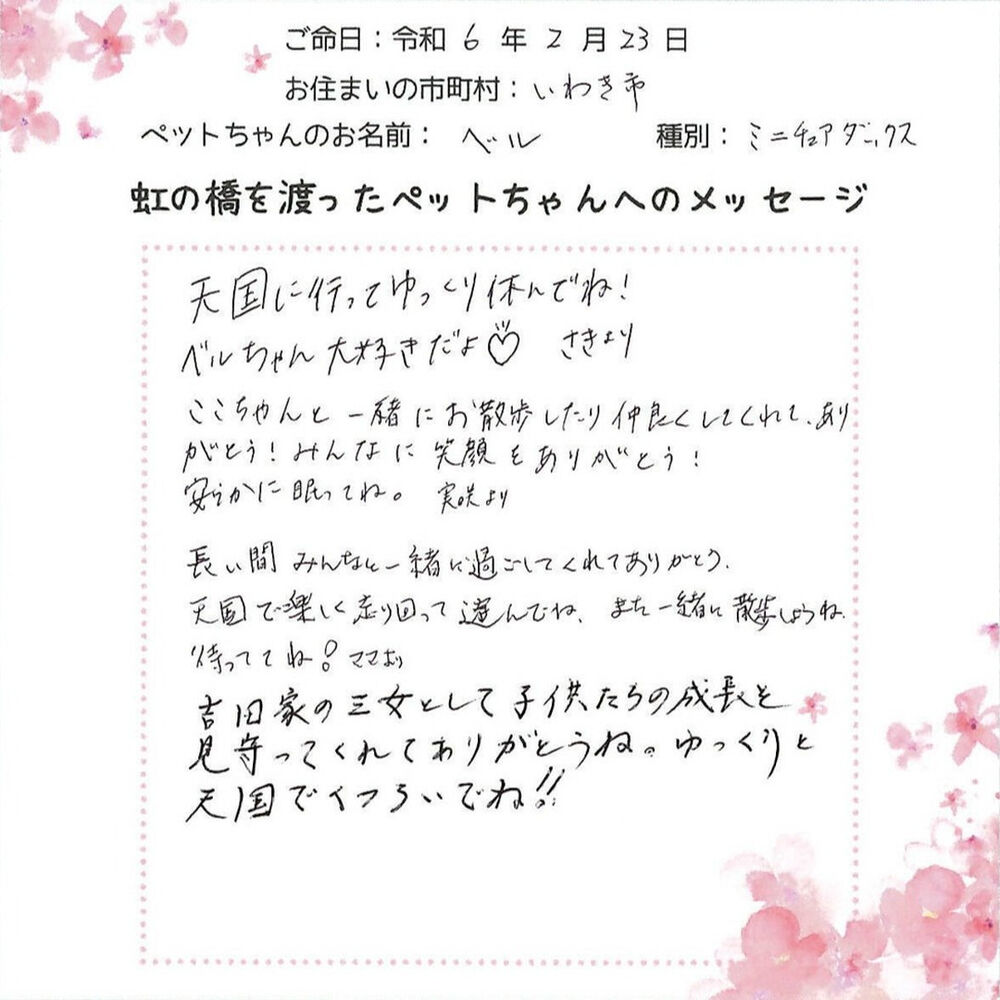 ご命日：令和 6 年 2 月 23 日
お住まいの市町村：いわき市
ペットちゃんのお名前： ベル 種別：ミニチュアダックス
虹の橋を渡ったペットちゃんへのメッセージ
天国に行ってゆっくり休んでね！
ベルちゃん大好きだよ♡ さきより
ここちゃんと一緒にお散歩したり仲良くしてくれて、あり
がとう！みんなに笑顔をありがとう！
安らかに眠ってね。 実咲より
長い間みんなと一緒に過ごしてくれてありがとう。
天国で楽しく走り回って遊んでね。また一緒に散歩しようね。
待っててね！ママより
吉田家の三女として子供たちの成長を
見守ってくれてありがとうね。ゆっくりと
天国でくつろいでね!!